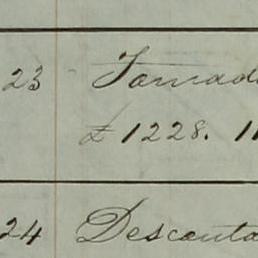 23 Tomad
£ 1228. 11
24 Desconta